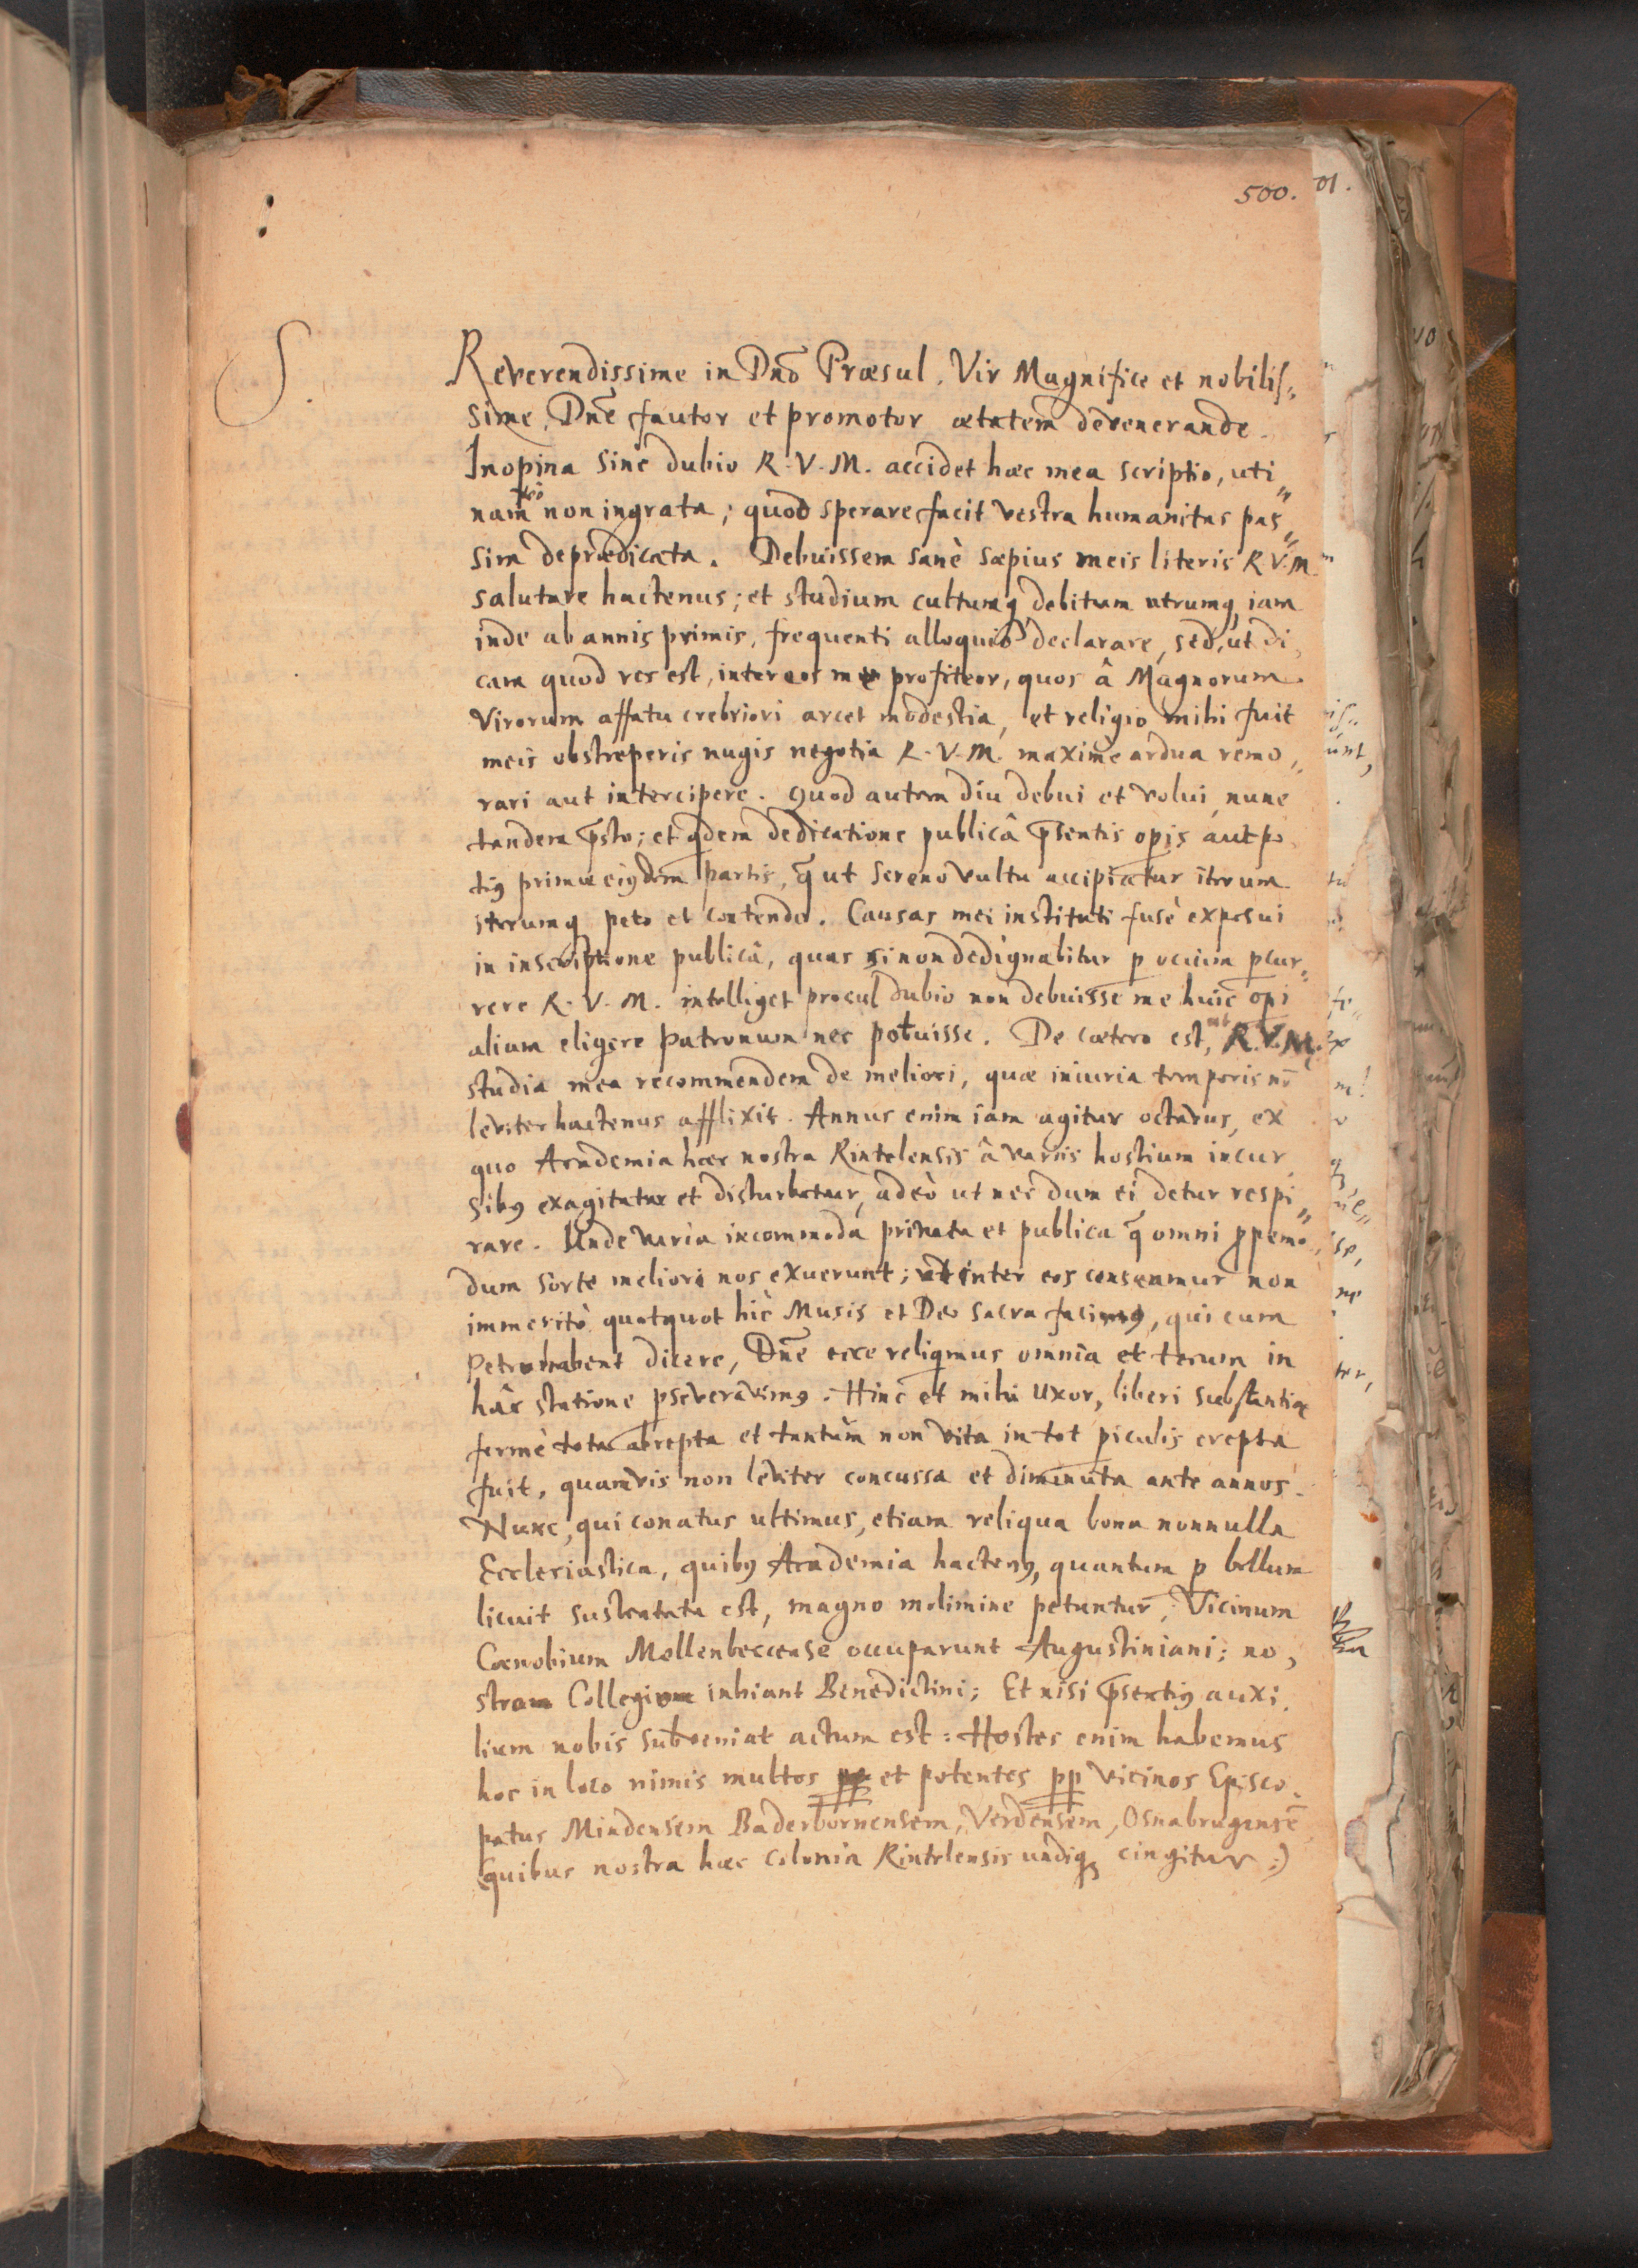 500.
S.
Reverendissime in Dnō Præsul. Vir Magnifice et nobilis„
sime, Dnē fautor et promotor ætatem devenerande.
Inopina sine dubio R. V. M. accidet hæc mea scriptio, uti„
nam non ingrata; quod sperare facit vestra humanitas pas„
sim deprædicata. Debuissem sanè sæpius meis literis R. V. M.
salutare hactenus; et studium cultumq debitum utrumq iam
inde ab annis primis, frequenti alloquio declarare, sed, ut di„
cam quod res est, inter eos me profiteor, quos â Magnorum
Virorum affatu crebriori arcet modestia, et religio mihi fuit
meis obstreperis nugis negotia R. V. M. maximè ardua remo„
rari aut intercipere. Quod autem diu debui et volui, nunc
tandem p̄sto; et qdem dedicatione publicâ p̄sentis opis aut po„
tiꝰ primæ eiꝰdem partis, q̄ ut sereno vultu accipiatur iterum
iterumq peto et contendo. Causas mei instituti fusè exposui
in inscriptione publicâ, quas si non dedignabitur p ocium pcur„
rere R. V. M. intelliget procul dubio non debuisse me huic opi
alium eligere patronum nec potuisse. De cætero est, ut R. V. M.
studia mea recommendem de meliori, quæ iniuria temporis nō
leviter hactenus afflixit. Annus enim iam agitur octavus, ex
quo Academia hæc nostra Rintelensis â variis hostium incur„
sibꝰ exagitatur et disturbatur, adeò ut nec dum ei detur respi„
rare. Unde varia incommoda privata et publica q̄ omni ppemo„
dum sorte meliori nos exuerunt; ut inter eos censeamur non
immeritò quotquot hîc Musis et Deo sacra facimꝰ, qui cum
Petro habent dicere, Dnē ecce reliqimus omnia et tecum in
hâc statione pseveravimꝰ. Hinc et mihi uxor, liberi substantia
fermè tota abrepta et tantùm non vita in tot piculis erepta
fuit, quamvis non leviter concussa et diminuta ante annos.
Nunc, qui conatus ultimus, etiam reliqua bona nonnulla
Ecclesiastica, quibꝰ Academia hactenꝰ, quantum p bellum
licuit sustentata est, magno molimine petuntur; Vicinum
Cœnobium Mollenbeccense occuparunt Augustiniani; no„
strum Collegium inhiant Benedictini; Et nisi p̄sentiꝰ auxi„
lium nobis subveniat actum est: Hostes enim habemus
hoc in loco nimis multos et potentes pp vicinos Episco„
patus Mindensem Baderbornensem, Verdensem, Osnabrugensē
(quibus nostra hæc colonia Rintelensis undiq cingitur:)